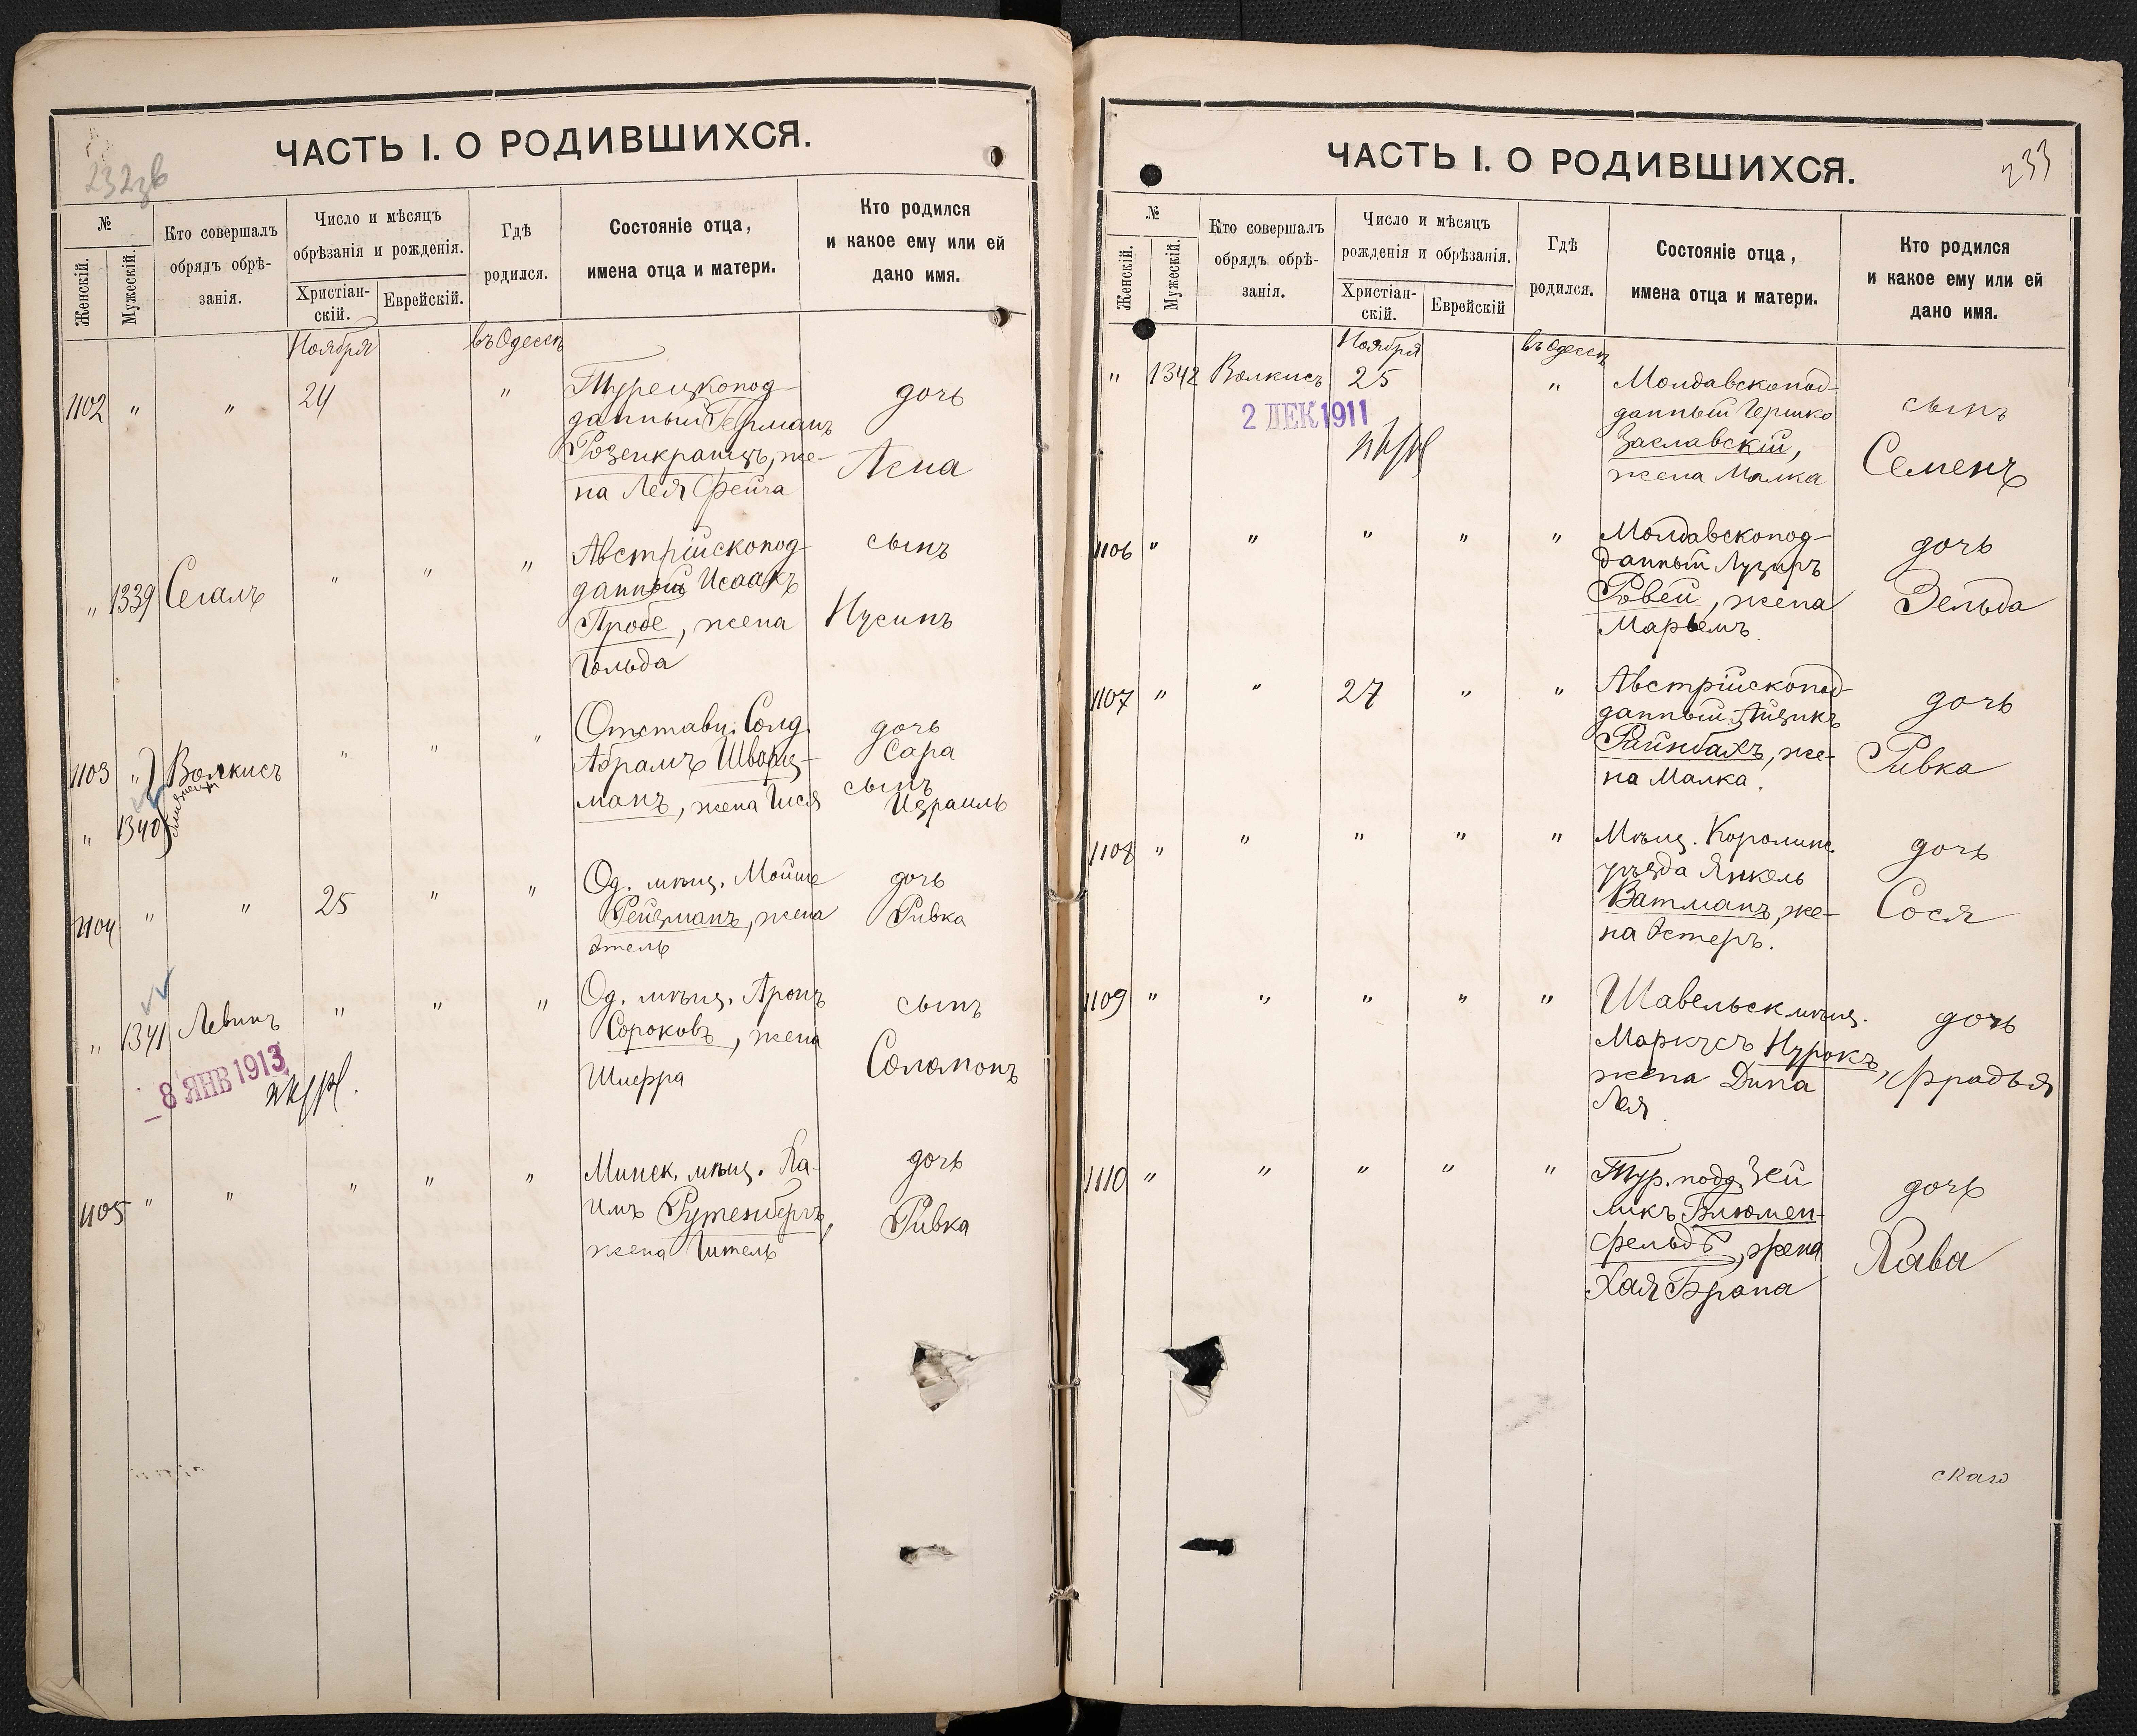 232 об
ЧАСТЬ I. О РОДИВШИХСЯ.
№
Женскій.
Мужескій.
Кто совершалъ
обрядъ обрѣ-
занія.
Число и мѣсяцъ
обрѣзанія и рожденія.
Христіан-
скій.
Еврейскій.
Гдѣ
родился.
Состояніе отца,
имена отца и матери.
Кто родился
и какое ему или ей
дано имя.
Ноября въ Одессѣ
1102 " " 24 " Турецкопод-
данный Германъ
Розенкранцъ, же-
на Лея Фейга
дочь
Асна
" 1339 Сегалъ " " " Австрійскопод-
данный Исаакъ
Пробе, жена
Гольда
сынъ
Нусинъ
1103 " Волкисъ " " " Отставн. Солд.
Абрамъ Шварц-
манъ, жена Гися
близнецы
" 1340
дочь
Сара
сынъ
Израиль
1104 " " 25 " " Од. мѣщ. Мойше
Рейзманъ, жена
Этель
дочь
Ривка
" 1341 Левинъ " " " Од. мѣщ. Аронъ
Сороковъ, жена
Шифра
сынъ
Соломонъ
8 ЯНВ 1913
1105 " " " " " Минск. мѣщ. Ха-
имъ Рутенбергъ,
жена Гитель
дочь
Ривка
233
ЧАСТЬ I. О РОДИВШИХСЯ.
№
Женскій.
Мужескій.
Кто совершалъ
обрядъ обрѣ-
занія.
Число и мѣсяцъ
рожденія и обрѣзанія.
Христіан-
скій.
Еврейскій
Гдѣ
родился.
Состояніе отца,
имена отца и матери.
Кто родился
и какое ему или ей
дано имя.
Ноября въ Одессѣ
" 1342 Волкисъ 25 " Молдавскопод-
данный Гершко
Заславскій,
жена Малка
сынъ
Семенъ
2 ДЕК 1911
1106 " " " " " Молдавскопод-
данный Лузиръ
Ровей, жена
Марьемъ
дочь
Зельда
1107 " " 27 " " Австрійскопод-
данный Айзикъ
Райнбахъ, же-
на Малка
дочь
Ривка
1108 " " " " " Мѣщ.
уѣзда Янкель
Ватманъ, же-
на Эстеръ.
дочь
Сося
1109 " " " " " Шавельск. мѣщ.
Маркусъ Нурокъ,
жена Дина
Лея
дочь
Фрадья
1110 " " " " " Тур. подд. Зей
ликъ Блюмен-
фельдъ, жена
Хая Брана
дочь
Хава
скаго